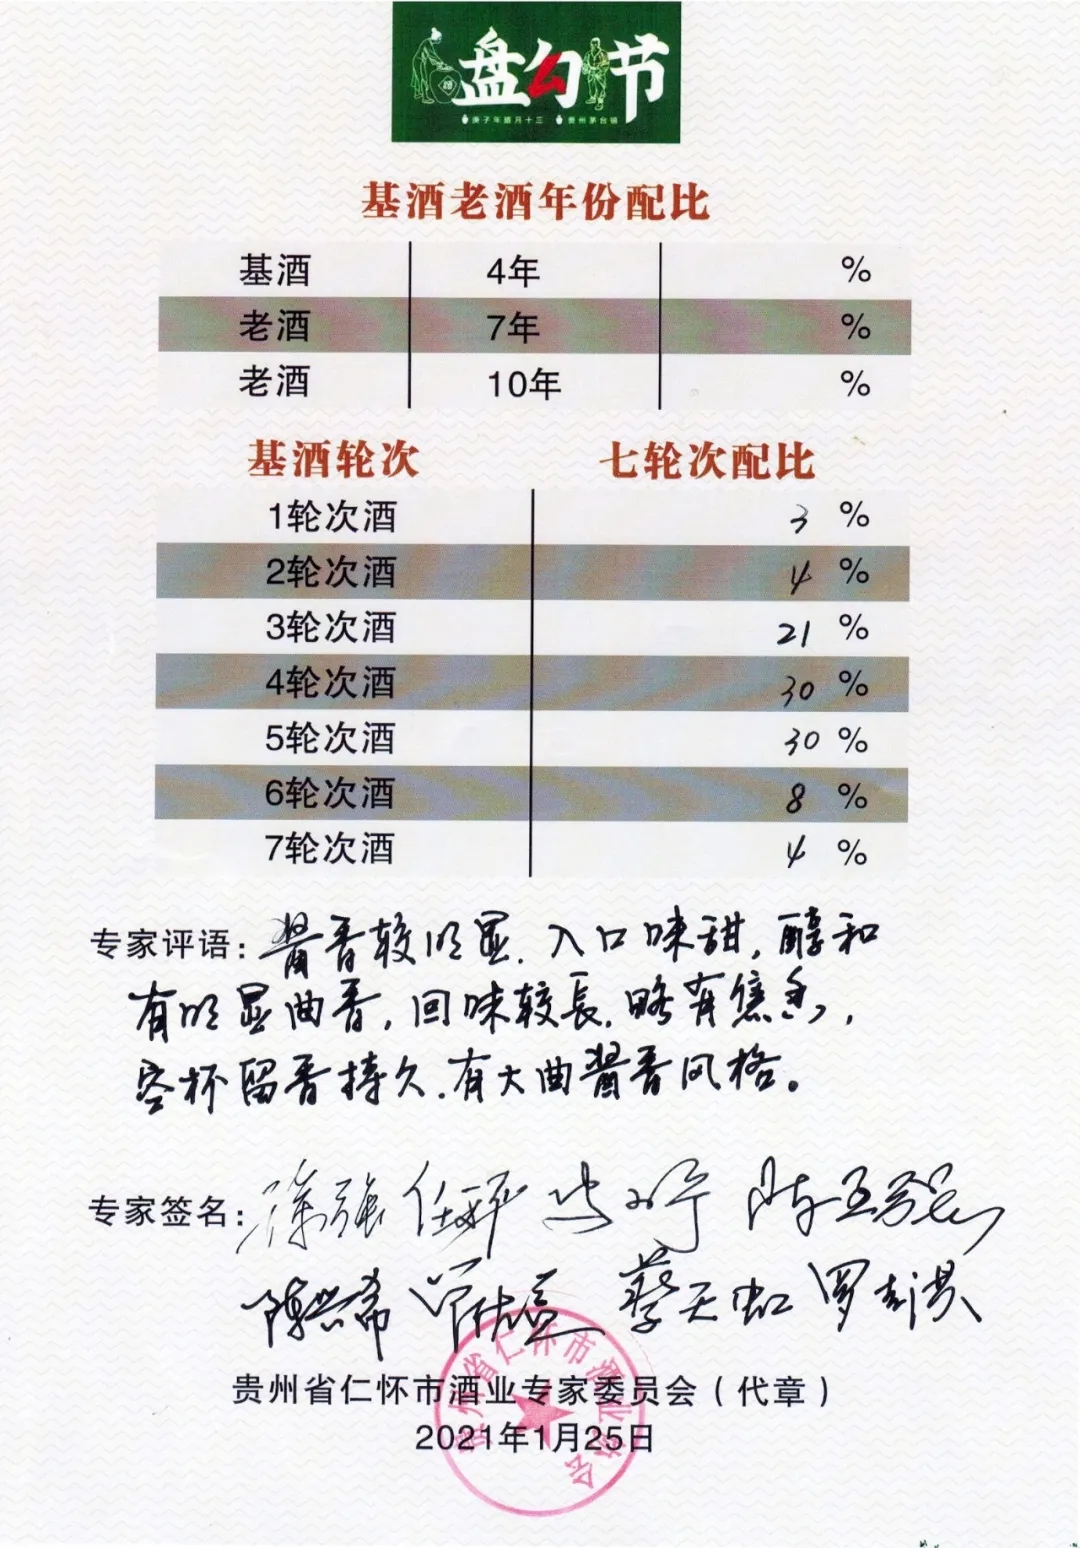 盘勾节
庚子年腊月十三 贵州茅台镇
基酒老酒年份配比
基酒 4年 %
老酒 7年 %
老酒 10年 %
基酒轮次 七轮次配比
1轮次酒 3 %
2轮次酒 4 %
3轮次酒 21 %
4轮次酒 30 %
5轮次酒 30 %
6轮次酒 8 %
7轮次酒 4 %
专家评语：酱香较明显，入口味甜，醇和
有明显曲香，回味较長，略有焦香，
空杯留香持久，有大曲酱香风格。
专家签名：徐强
蔡天虹
贵州省仁怀市酒业专家委员会（代章）
2021年1月25日
贵州省仁怀市酒业协会